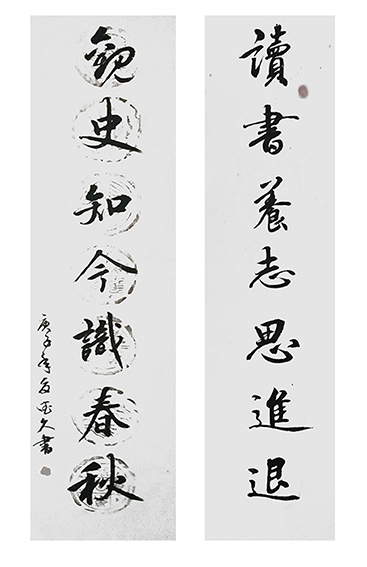 讀書養志思進退
觀史知今識春秋
庚子年 文書